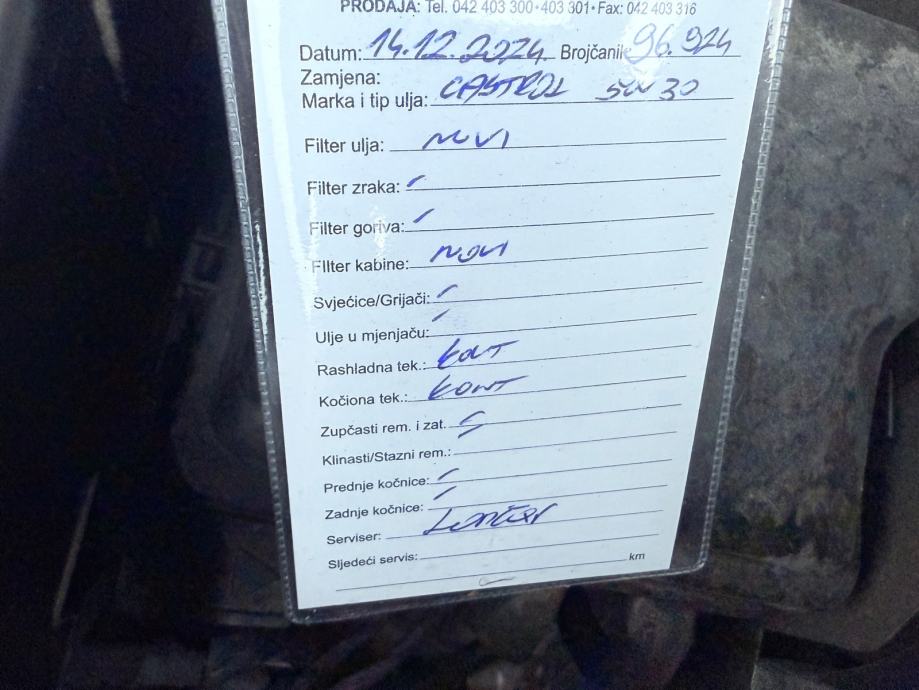 PRODAJA: Tel. 042 403 300·403 301·Fax: 042 403 316
Datum: 14.12.2024. Brojčanik 96.924
Zamjena:
Marka i tip ulja: CASTROL 5W30
Filter ulja: NOVI
Filter zraka: -
Filter goriva: -
FIlter kabine: NOVI
Svjećice/Grijači: -
Ulje u mjenjaču: -
Rashladna tek.: KONT
Kočiona tek.: KONT
Zupčasti rem. i zat.
Klinasti/Stazni rem.:
Prednje kočnice: -
Zadnje kočnice: -
Serviser: Lončar
Sljedeći servis: km